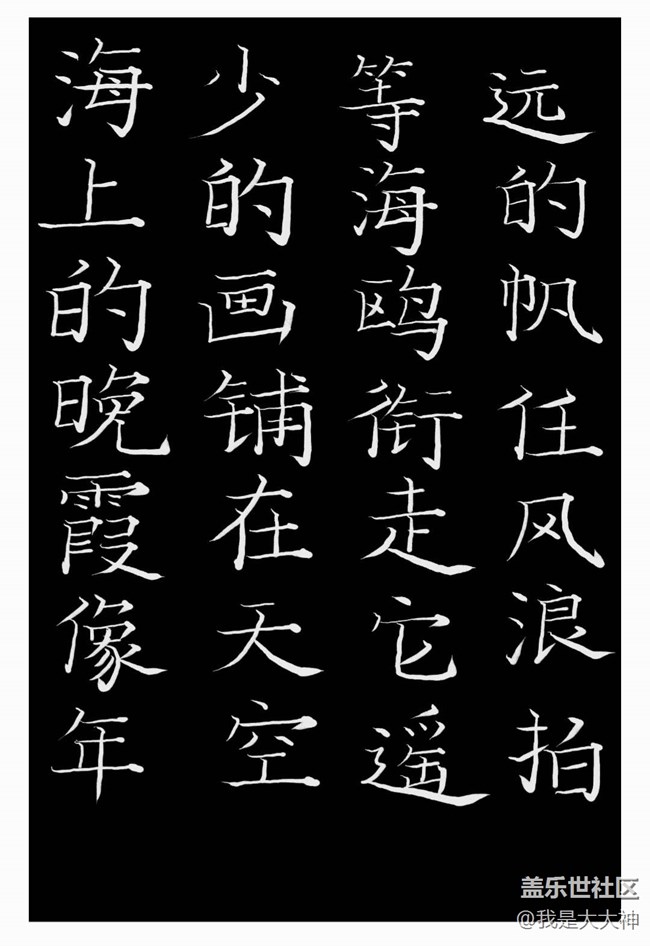 海上的晚霞像年
少的画铺在天空
等海鸥衔走它遥
远的帆任风浪拍
盖乐世社区
@我是大大神